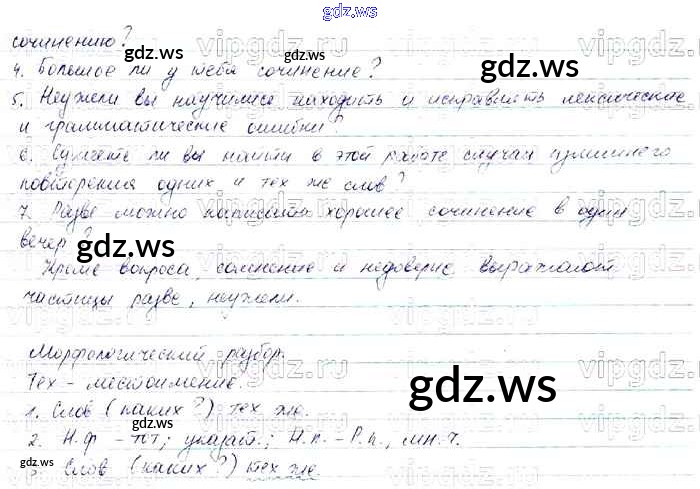 gdz.ws
сочинению?
4. Большое ли у тебя сочинение?
5. Неужели вы научились находить и исправлять лексические
и грамматические ошибки?
6. Сумеете ли вы найти в этой работе случаи излишнего
повторения одних и тех же слов?
7. Разве можно написать хорошее сочинение в один
вечер?
Кроме вопроса, сомнение и недоверие выражают
частицы разве, неужели.
Морфологический разбор.
Тех - местоимение.
1. Слов (каких?) тех же.
2. Н.ф - тот; указат.; Н.п. - Р.п., мн.ч.
3. Слов (каких?) тех же.
gdz.ws
gdz.ws
gdz.ws
gdz.ws
vipgdz.ru
vipgdz.ru
vipgdz.ru
vipgdz.ru